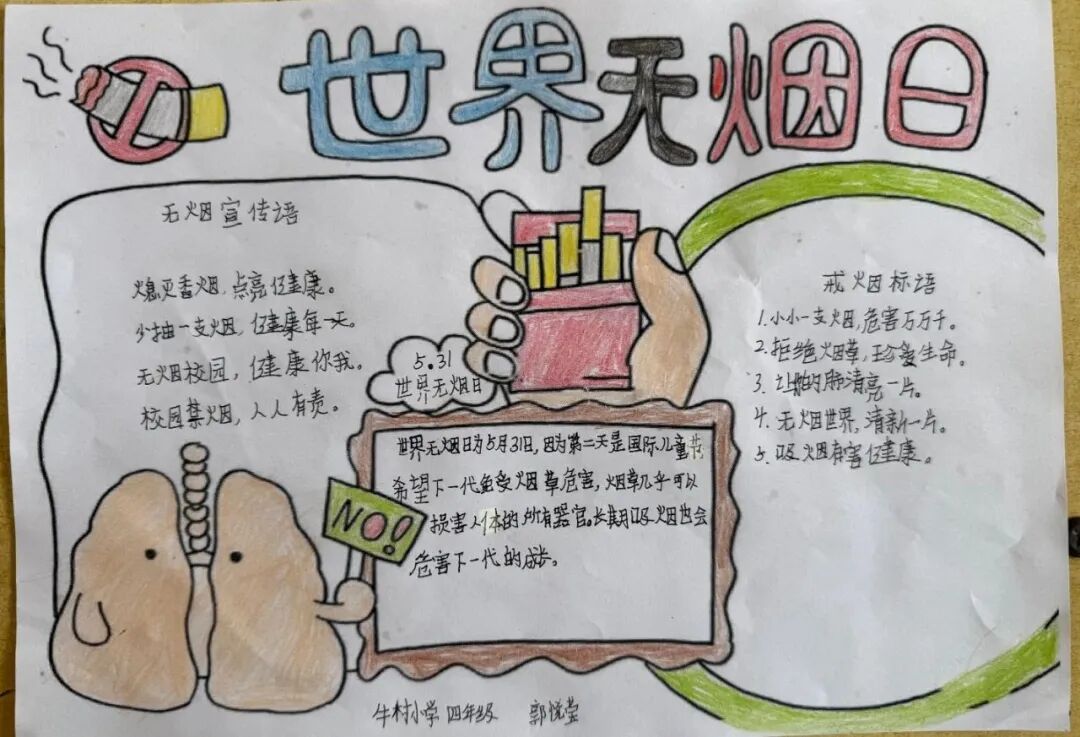 世界无烟日
无烟宣传语
熄灭香烟,点亮健康。
少抽一支烟,健康每一天。
无烟校园,健康你我。
校园禁烟,人人有责。
5.31
世界无烟日
戒烟标语
1.小小一支烟,危害万万千。
2.拒绝烟草,珍爱生命。
3.让肺的肺清亮一片。
4.无烟世界,清新一片。
5.吸烟有害健康。
世界无烟日为5月31日,因为第二天是国际儿童节
希望下一代免受烟草危害,烟草几乎可以
损害人体的所有器官。长期吸烟也会
危害下一代的成长。
NO!
牛村小学 四年级 郭悦莹